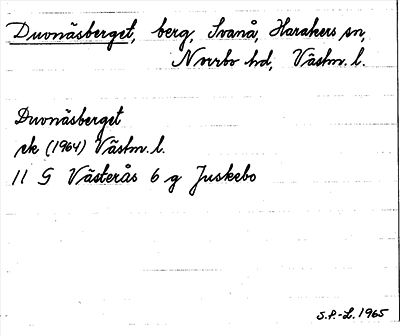 Duvnäsberget, berg, Svanå, Harakers sn,
Norrbo hd, Västm. l.
Duvnäsberget
ek (1964) Västm. l.
11 G Västerås 6 g Juskebo
S.P.-L. 1965